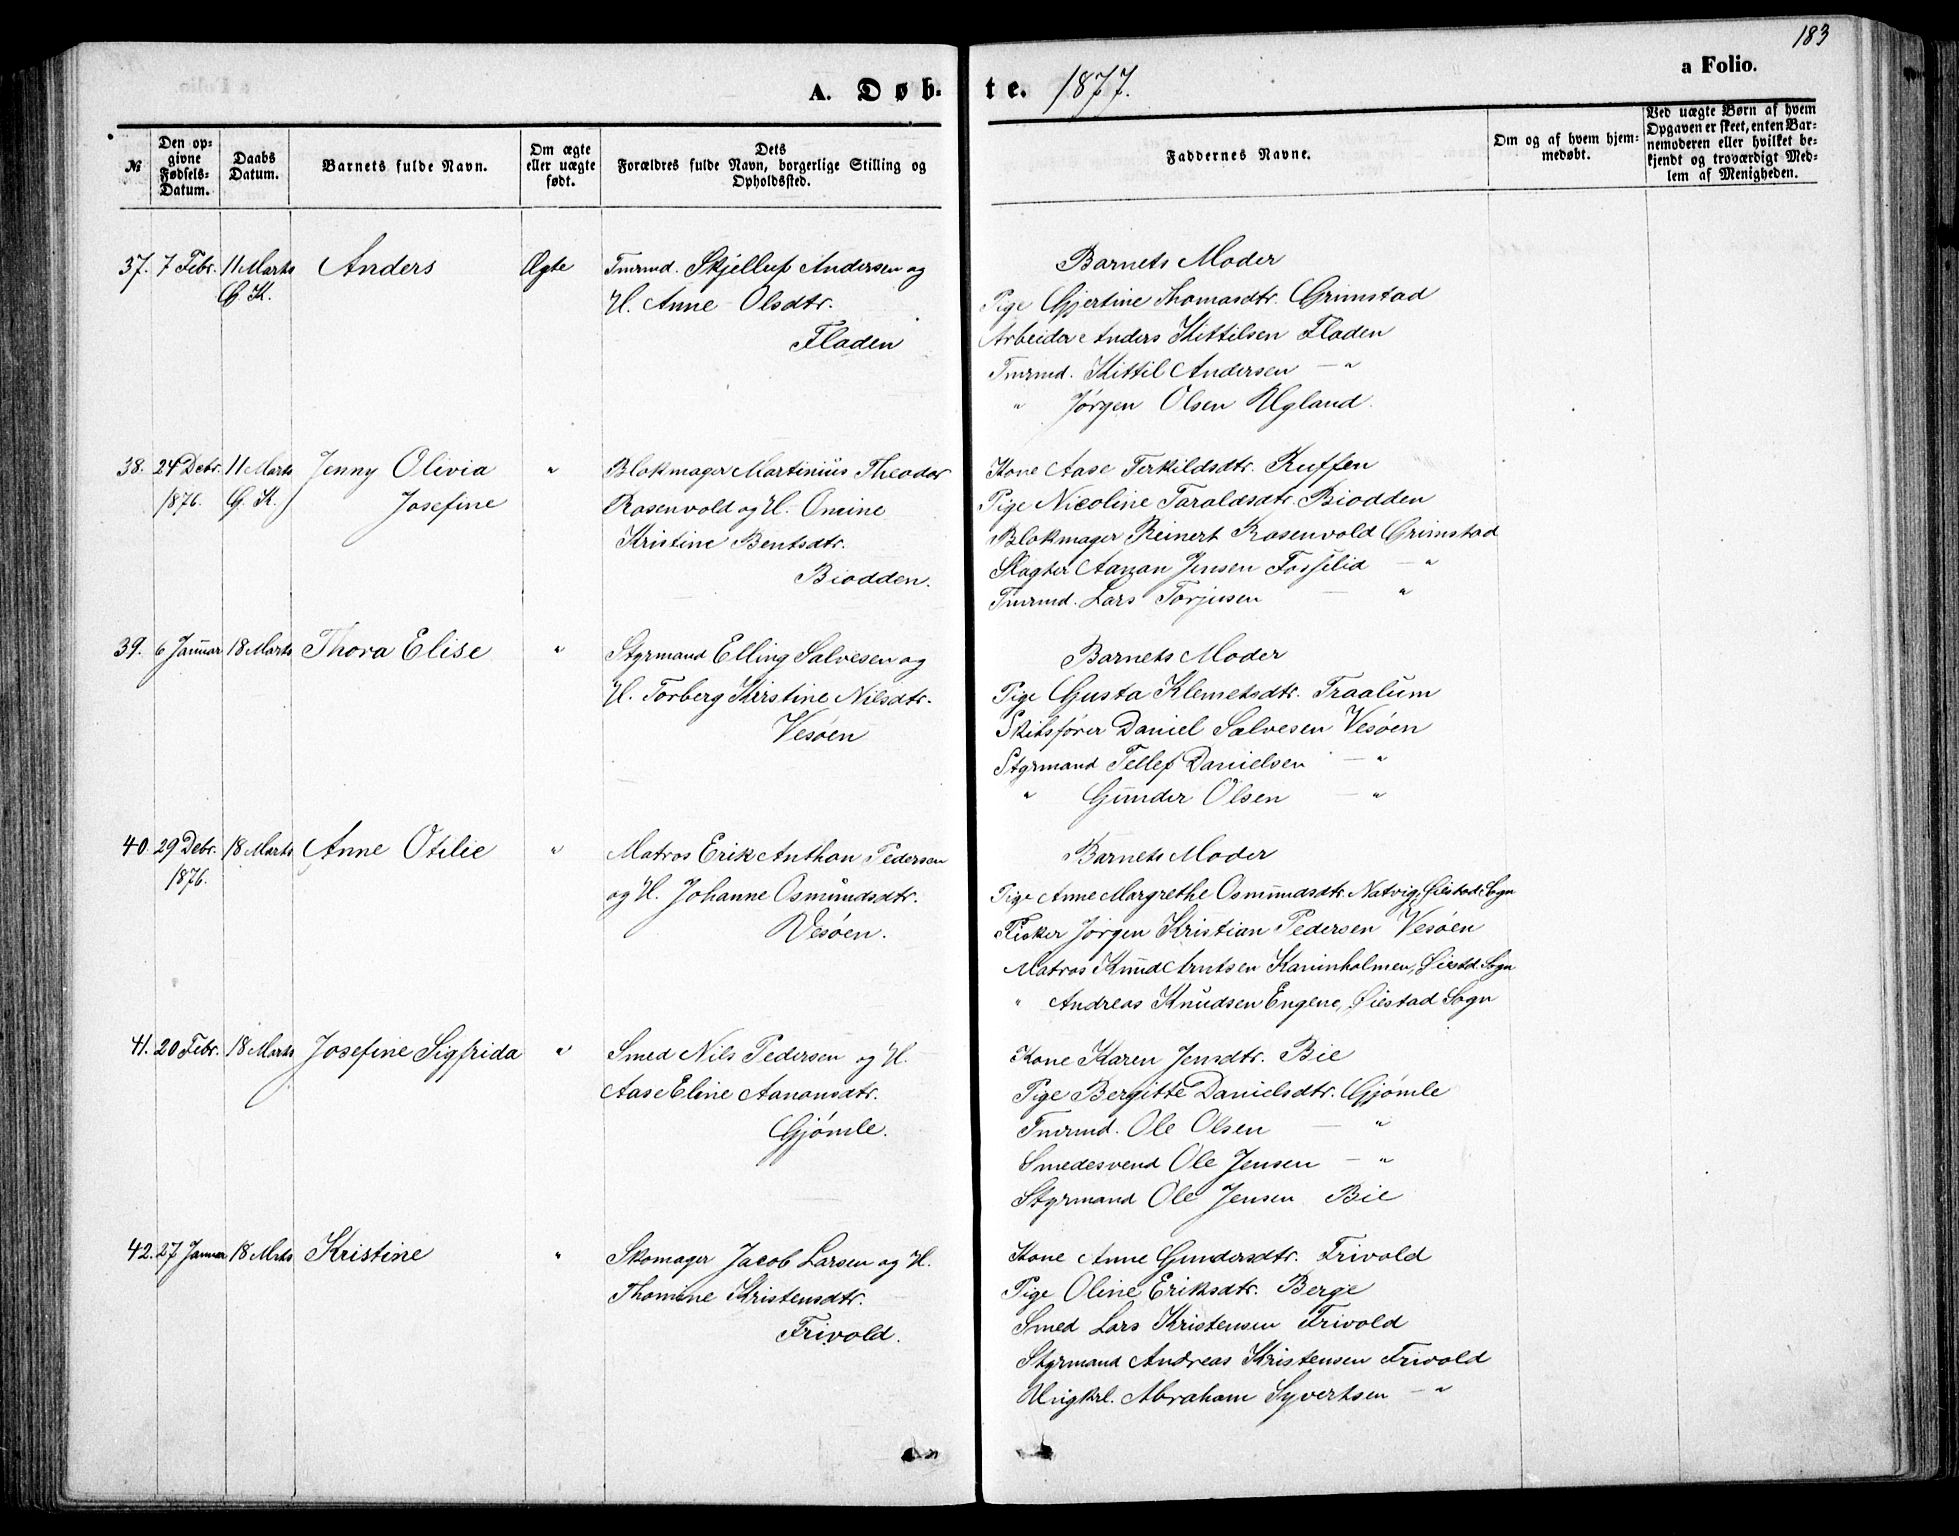 183
a Folio.
A. Døbte. 1877.
№
Den opgivne Fødsels-Datum.
Daabs Datum.
Barnets fulde Navn.
Om ægte eller uægte født.
Dets Forældres fulde Navn, borgerlige Stilling og Opholdssted.
Faddernes Navne.
Om og af hvem hjemmedøbt.
Ved uægte Børn af hvem Opgaven er skeet, enten Barnemoderen eller hvilket bekjendt og troværdigt Medlem af Menigheden.
37. 7 Febr. 11 Marts Anders Ægte Tmrmd. Skjelluf Andersen og
G. K. H. Anne Olsdtr.
Fladen
Barnets Moder
Pige Gjertine Thomasdtr. Grimstad
Arbeider Anders Kittilsen Fladen
Tmrmd. Kittil Andersen — "
" Jørgen Olsen Ugland.
38. 24 Debr. 11 Marts Jenny Olivia " Blokmager Martinius Theodor
1876. G. K. Josefine Rosenvold og H. Omine
Kristine Bentsdtr.
Biodden.
Kone Aase Terkildsdtr. Kuffen
Pige Nicoline Taraldsdtr. Biodden
Blokmager Reinert Rosenvold Grimstad
Slagter Aanon Jensen Fosselid — "
Tmrmd. Lars Torjusen — "
39. 6 Januar 18 Marts Thora Elise " Styrmand Elling Salvesen og
H. Torberg Kirstine Nilsdtr.
Vesøen
Barnets Moder
Pige Gusta Klemetsdtr. Traalum
Skibsfører Daniel Salvesen Vesøen
Styrmand Tellef Danielsen — "
" Gunder Olsen — "
40. 29 Debr. 18 Marts Anne Otilie " Matros Erik Anthon Pedersen
1876. og H. Johanne Osmundsdtr.
Vesøen.
Barnets Moder
Pige Anne Margrethe Osmundsdtr. Natvig, Øiestad Sogn
Fisker Jørgen Kristian Pedersen Vesøen
Matros Knud Arntsen Karinholmen, Øiestd. Sogn
" Andreas Knudsen Engene, Øiestad Sogn
41. 20 Febr. 18 Marts Josefine Sigfrida " Smed Nils Pedersen og H.
Aase Eline Aanonsdtr.
Gjømle.
Kone Karen Jensdtr. Bie
Pige Bergitte Danielsdtr. Gjømle
Tmrmd. Ole Olsen — "
Smedesvend Ole Jensen — "
Styrmand Ole Jensen Bie
42. 27 Januar 18 Mrts Kristine " Skomager Jacob Larsen og H.
Thomine Kristensdtr.
Frivold.
Kone Anne Gundersdtr. Frivold
Pige Oline Eriksdtr. Berge
Smed Lars Kristensen Frivold
Styrmand Andreas Kristensen Frivold
Ungkrl. Abraham Syvertsen — "